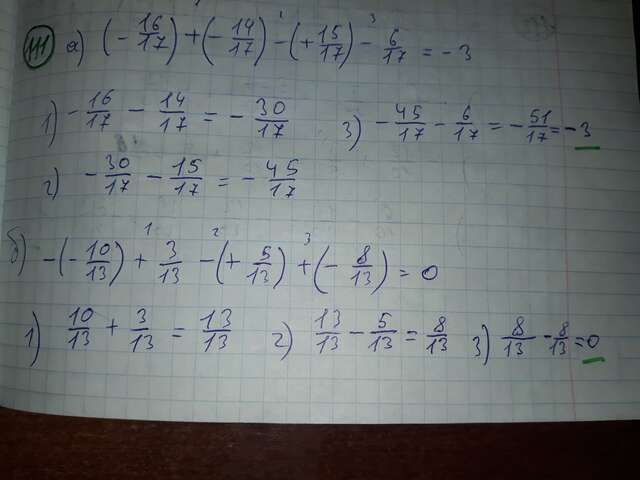 111 а) (- 16/17) + (- 14/17) - (+ 15/17) - 6/17 = - 3
1) - 16/17 - 14/17 = - 30/17
3) - 45/17 - 6/17 = - 51/17 = - 3
2) - 30/17 - 15/17 = - 45/17
б) - (- 10/13) + 3/13 - (+ 5/13) + (- 8/13) = 0
1) 10/13 + 3/13 = 13/13 2) 13/13 - 5/13 = 8/13 3) 8/13 - 8/13 = 0